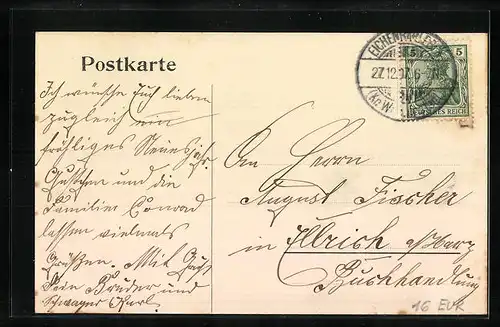 Postkarte
EICHENBARLEBEN
27.12.07. 6-7N.
5
DEUTSCHES REICH
Ich wünsche Euch lieben
zugleich ein
fröhliges Neues Jahr.
Gustchen und die
Familien Conrad
lassen vielmals
Grüßen. Mit Gruß
Dein Bruder und
Schwager Karl.
An Herrn
August Fischer
in Ellrich a/Harz
Buchhandlung
16 EUR